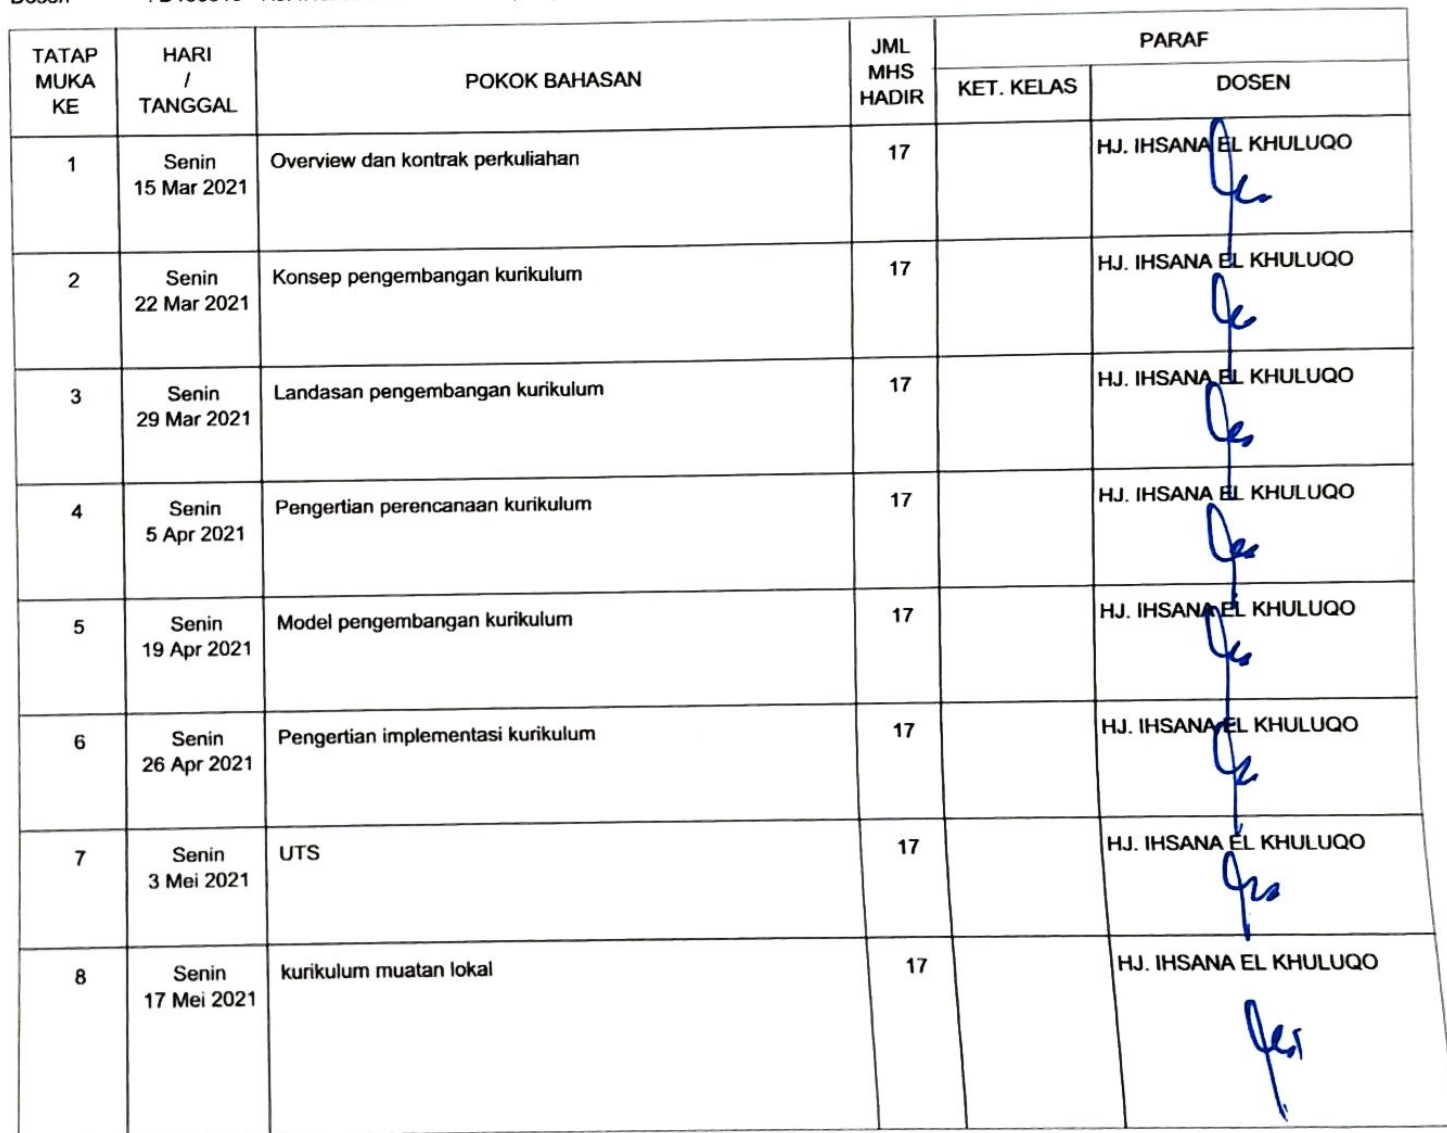 TATAP MUKA KE
HARI / TANGGAL
POKOK BAHASAN
JML MHS HADIR
PARAF
KET. KELAS
DOSEN
1
Senin
15 Mar 2021
Overview dan kontrak perkuliahan
17
HJ. IHSANA EL KHULUQO
2
Senin
22 Mar 2021
Konsep pengembangan kurikulum
17
HJ. IHSANA EL KHULUQO
3
Senin
29 Mar 2021
Landasan pengembangan kurikulum
17
HJ. IHSANA EL KHULUQO
4
Senin
5 Apr 2021
Pengertian perencanaan kurikulum
17
HJ. IHSANA EL KHULUQO
5
Senin
19 Apr 2021
Model pengembangan kurikulum
17
HJ. IHSANA EL KHULUQO
6
Senin
26 Apr 2021
Pengertian implementasi kurikulum
17
HJ. IHSANA EL KHULUQO
7
Senin
3 Mei 2021
UTS
17
HJ. IHSANA EL KHULUQO
8
Senin
17 Mei 2021
kurikulum muatan lokal
17
HJ. IHSANA EL KHULUQO